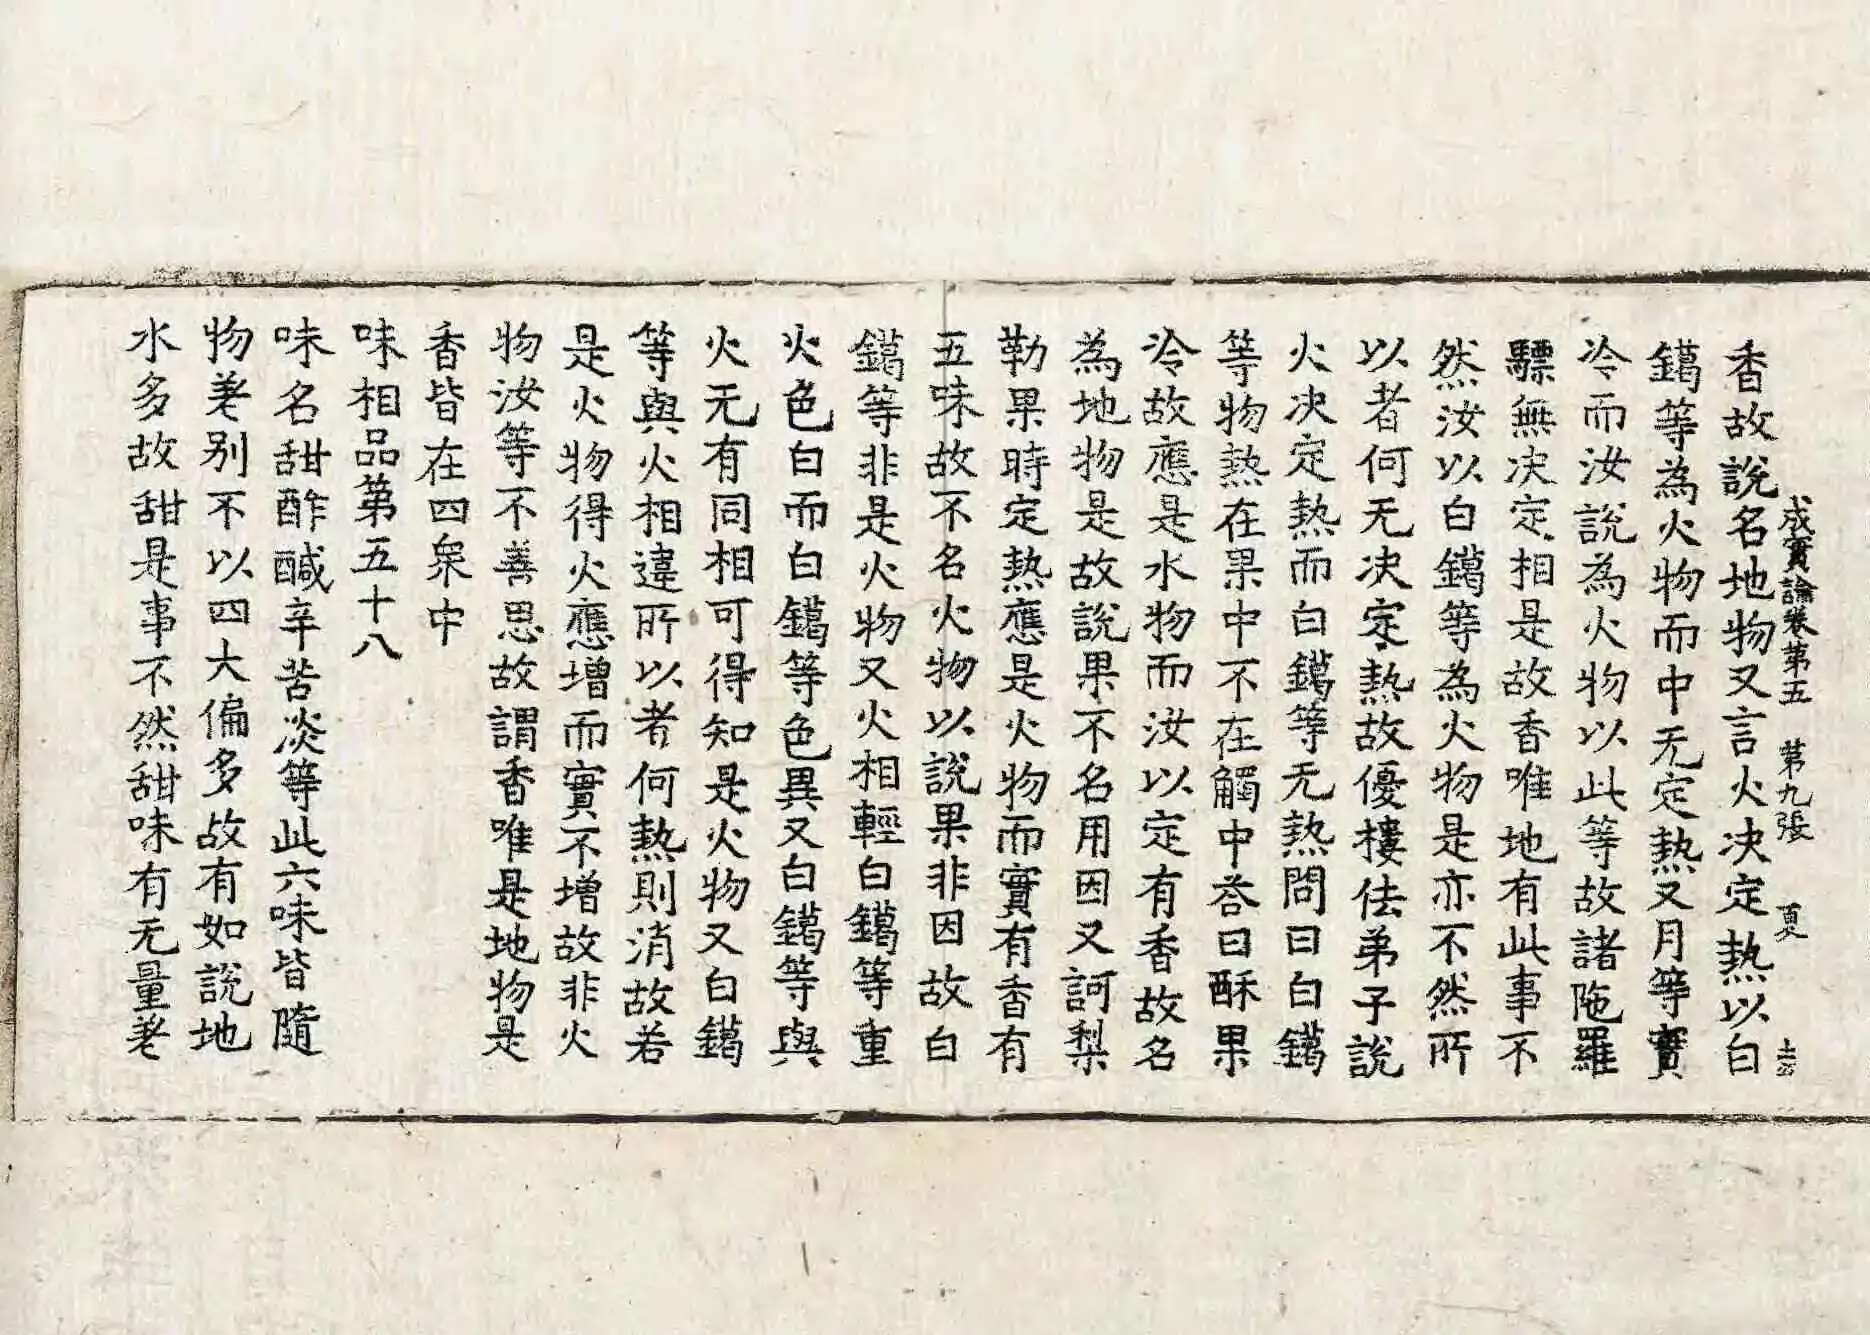 成實論卷第五　第九張　夏
香故說名地物又言火決定熱以白
鑞等為火物而中无定熱又月等實
冷而汝說為火物以此等故諸陁羅
驃無决定相是故香唯地有此事不
然汝以白鑞等為火物是亦不然所
以者何无决定熱故優樓佉弟子說
火决定熱而白鑞等无熱問曰白鑞
等物熱在果中不在觸中荅曰酥果
冷故應是水物而汝以定有香故名
為地物是故說果不名用因又訶梨
勒果時定熱應是火物而實有香有
五味故不名火物以說果非因故白
鑞等非是火物又火相輕白鑞等重
火色白而白鑞等色異又白鑞等與
火无有同相可得知是火物又白鑞
等與火相違所以者何熱則消故若
是火物得火應增而實不增故非火
物汝等不善思故謂香唯是地物是
香皆在四衆中
味相品第五十八
味名甜酢醎辛苦淡等此六味皆隨
物差别不以四大偏多故有如說地
水多故甜是事不然甜味有无量差